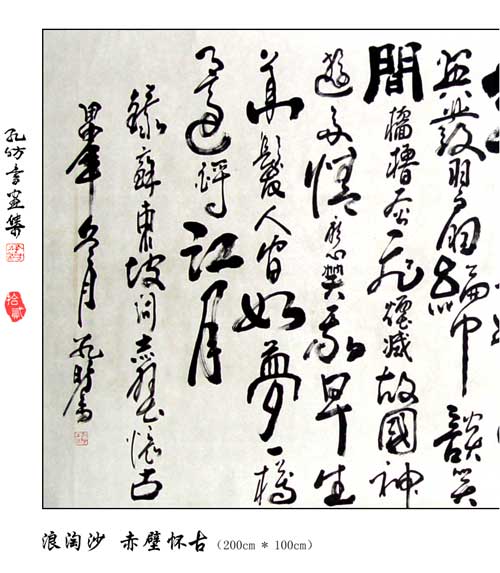 英發羽扇綸巾談笑
間檣櫓灰飛煙滅故國神
遊多情應笑我早生
華髮人間如夢一樽
還酹江月
錄蘇東坡詞赤壁懷古
年冬月
書畫集
拾貳
浪淘沙 赤壁怀古（200cm * 100cm）